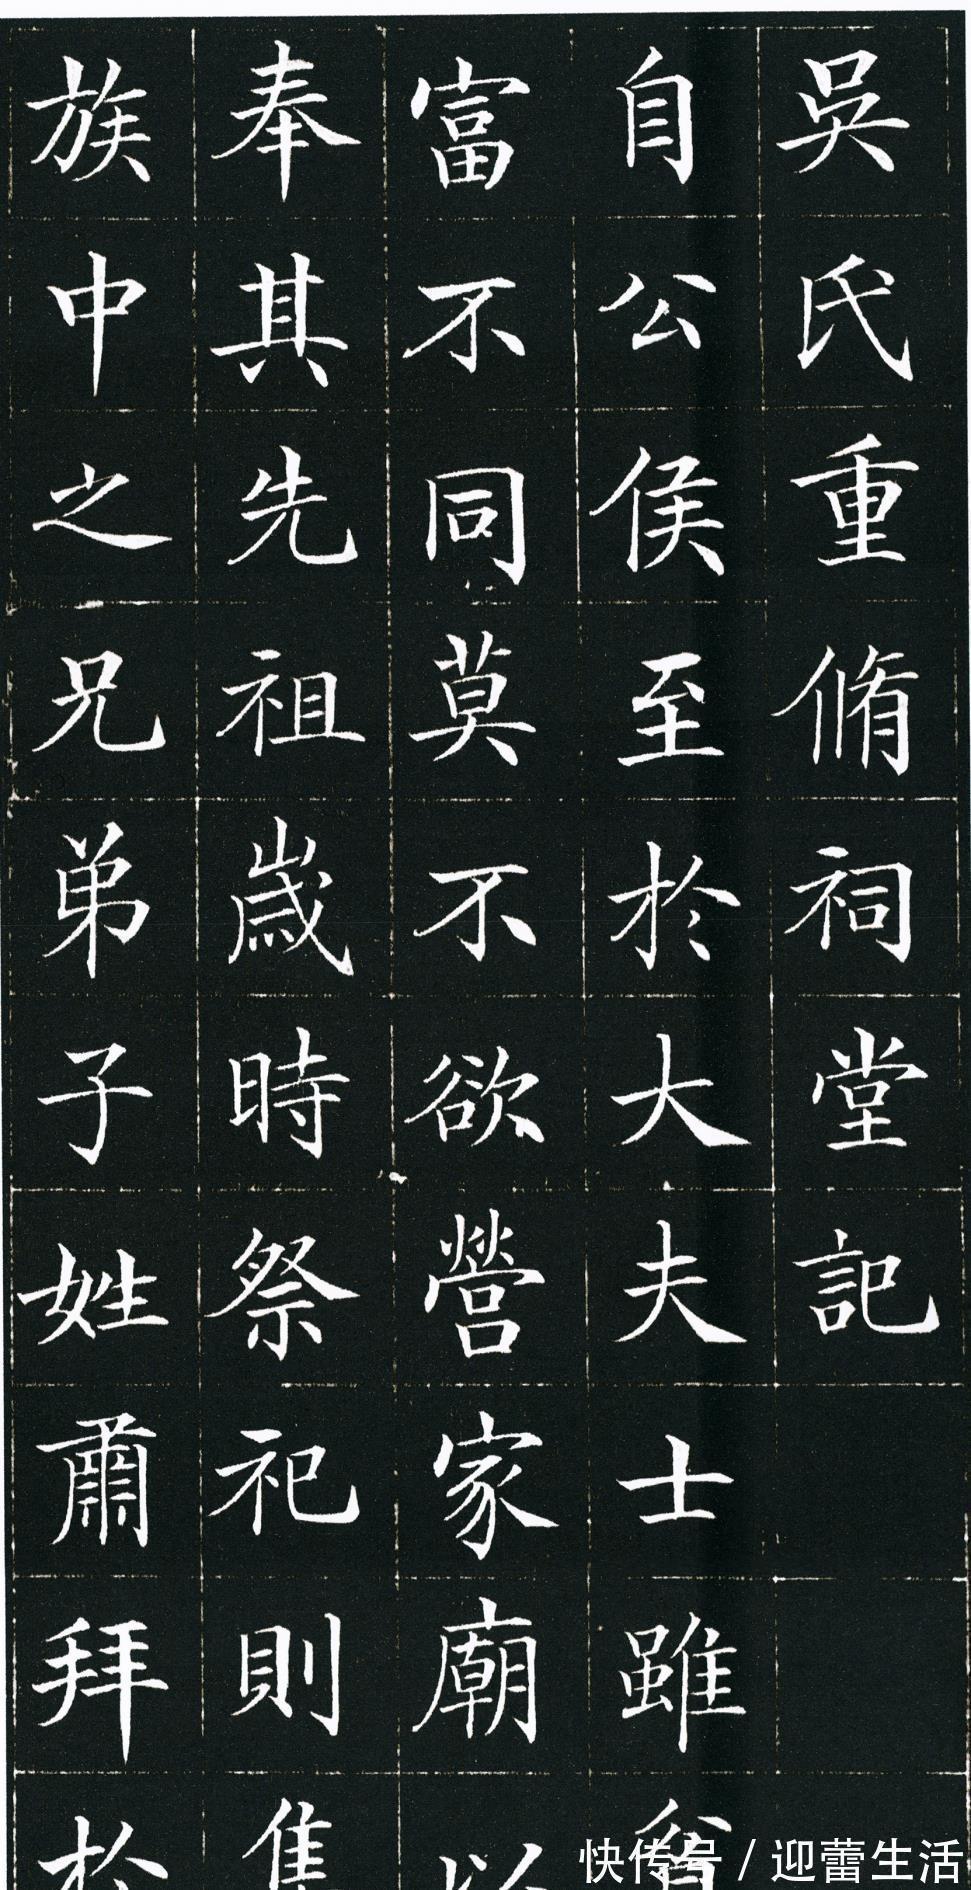 吳氏重脩祠堂記
自公侯至於大夫士雖貧
富不同莫不欲營家廟以
奉其先祖歲時祭祀則集
族中之兄弟子姓肅拜於
快传号/迎蕾生活